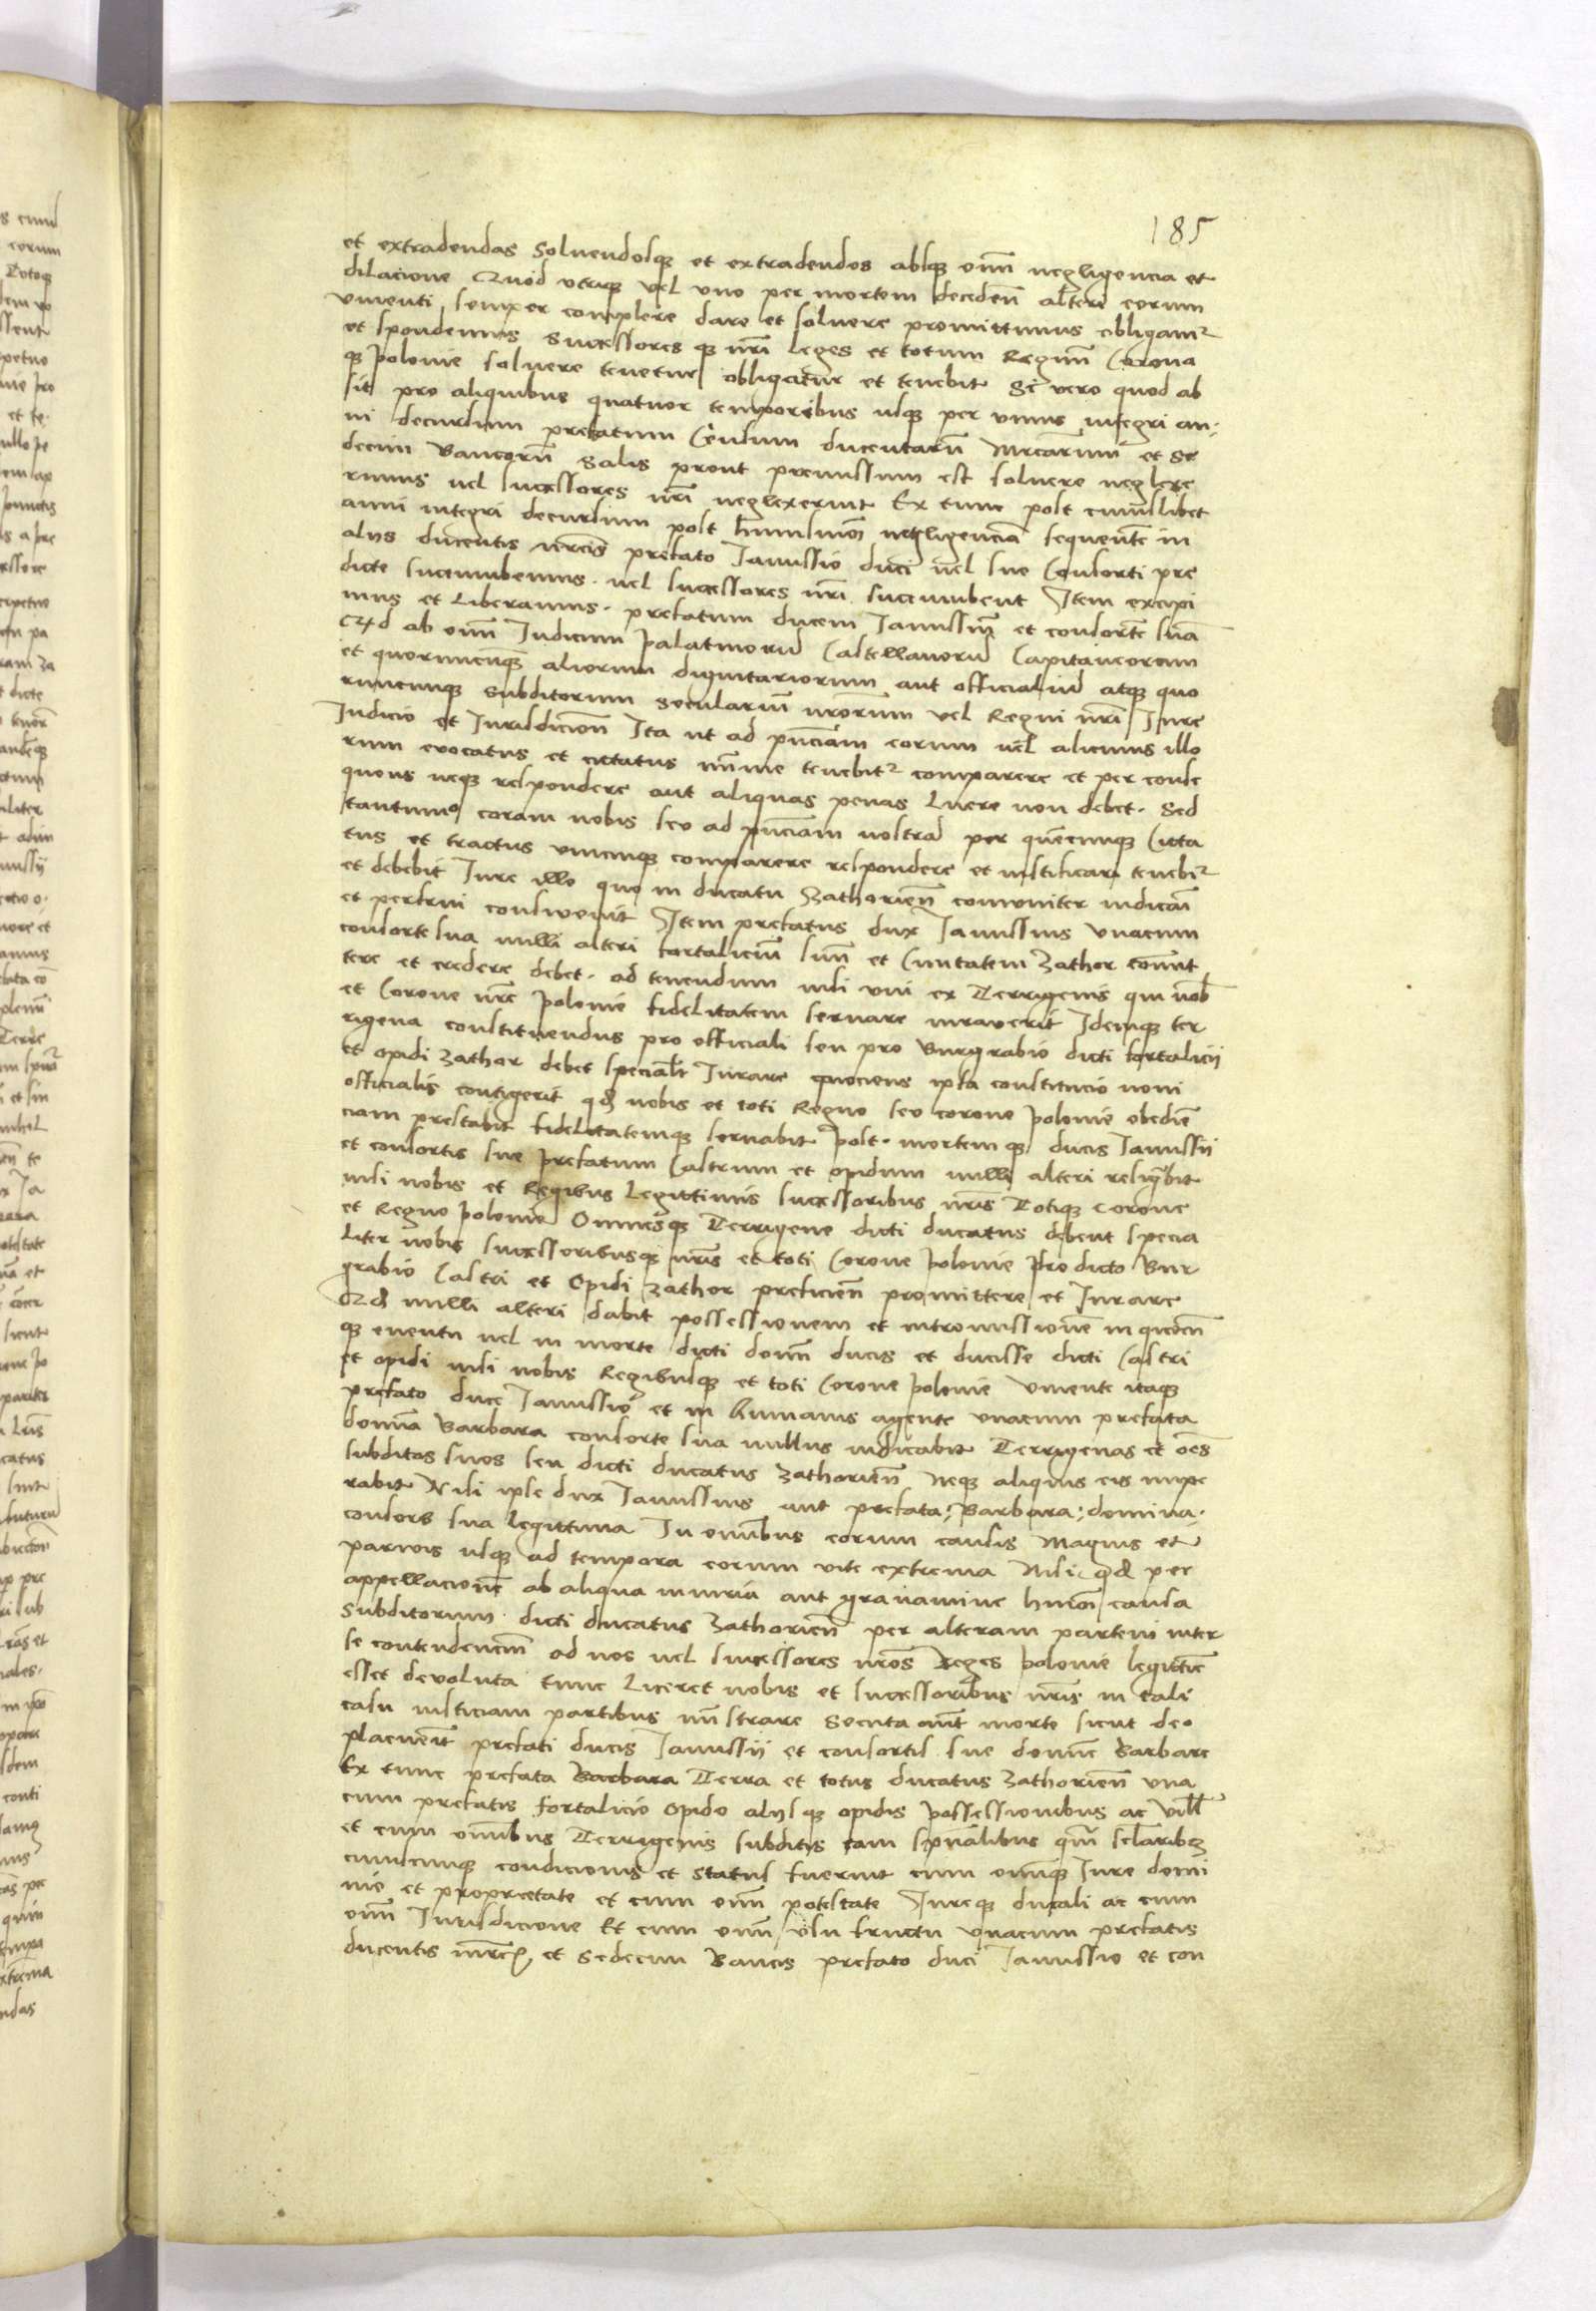 185
et extradendas Soluendosq; et extradendos absq; om̅ni negligencia et
dilacione Quod vtriq; vel vno per mortem deceden̅ alteri eorum
viuenti semper complere dare et soluere promittimus obligamꝰ
et spondemus Successores q; nr̅i Reges et totum Regnu̅ Corona
q; polonie soluere tenetur obligatur et tenebit̅ Si vero quod ab
sit pro aliquibus quatuor temporibus usq; per vnius integri an:
ni decursum prefatum Censum ducentaru̅ Mr̅carum et Se
decim Bancoru̅ Salis prout premissum est soluere neglexe
rimus vel successores nr̅i neglexerint Ex tunc post cuiuslibet
anni integri decursum post hui̅usmo̅i negligencia̅ sequente̅ in
alys ducentis mr̅cis prefato Janussio duci vel sue Consorti pre
dicte succumbemus . vel successores nr̅i succumbent Item excipi
mus et Liberamus . prefatum ducem Janussiu̅ et consorte̅ sua̅
Qꝫd ab om̅ni Judicium palatinoru̅ Castellanoru̅ Capitaneorum
et quorumcunq; aliorum dignitariorum aut officialiu̅ atq; quo
rumcunq; Subditorum seculariu̅ nr̅orum vel Regni nr̅i Jure
Judicio et Jurisdicion̅ Ita ut ad pn̅ciam eorum vel alicuius illo
rum euocatus et citatus mi̅nime tenebitꝰ comparere et per conse
quens neq; respondere aut aliquas penas Luere non debet . Sed
tantum̅o coram nobis seu ad pn̅ciam nostra̅ per que̅cunq; Cita
tus et tractus vnicuiq; comparere respondere et iustificari tenebiꝰ
et debebit Jure illo quo in ducatu Zathorien̅ com̅uniter iudicari
et perfrui consweuit Item prefatus dux Janussius vnacum
consorte sua nulli alteri fortaliciu̅ suu̅ et Ciuitatem Zathor com̅it
tere et credere debet . ad tenendum nisi vni ex Terrigenis qui nob̅
et Corone nr̅e polonie fidelitatem seruare iurauerit Idemq; ter
rigena constituendus pro officiali seu pro Burgrabio dicti fortalicii
et opidi Zathor debet special̅r Jurare quociens ipsa constitucio noui
officialis contigerit qd̅ nobis et toti Regno seu corone polonie obedie̅
ciam prestabit fidelitatemq; seruabit post . mortem q; ducis Janussii
et consortis sue prefatum Castrum et opidum nulli alteri reliq̅bit
nisi nobis et Regibus Legittimis successoribus nr̅is Totiq; Corone
et Regno polonie Omnesq; Terrigene dicti ducatus debent specia
liter nobis successoribusq; nr̅is et toti Corone polonie pro dicto Bur
grabio Castri et Opidi Zathor preficien̅ promittere et Jurare
Qd̅ nulli alteri dabit possessionem et intromissione̅ in quocu̅
q; euentu vel in morte dicti domi̅ ducis et ducisse dicti Castri
et opidi nisi nobis Regibusq; et toti Corone polonie viuente itaq;
prefato duce Janussio et in humanis agente vnacum prefata
domi̅a Barbara consorte sua nullus iudicabit Terrigenas et oēs
subditos suos seu dicti ducatus Zathorien̅ Neq; aliquis eis impe
rabit Nisi ipse dux Janussius aut prefata; Barbara; domina .
consors sua legittima In omibus eorum causis Magnis et
paruis usq; ad tempora eorum vite extrema Nisi qd̅ per
appellacione̅ ab aliqua iniuria aut grauamine hmo̅i causa
Subditorum . dicti ducatus Zathorien̅ per alteram partem inter
se contendenciu̅ ad nos vel successores nr̅os Reges polonie legittime
esset deuoluta tunc Liceret nobis et successoribus nr̅is in tali
casu iusticiam partibus mi̅strare Secuta aut̅ morte sicut deo
placuerit prefati ducis Janussii et consortis sue domine Barbare
Ex tunc prefata Barbara Terra et totus ducatus Zathorien̅ vna
cum prefatis fortalicio opido alijsq; opidis possessionibus ac vill̅
et cum omibus Terrigenis subditis tam spu̅alibus qm̅ sclaribꝫ
cuiuscunq; condicionis et Status fuerint cum omiq; Jure domi
nio et proprietate et cum om̅i potestate Jureq; ducali ac cum
om̅i Jurisdicione Et cum om̅i vsu fructu vnacum prefatis
ducentis mr̅cis et Sedecim Bancis prefato duci Janussio et con